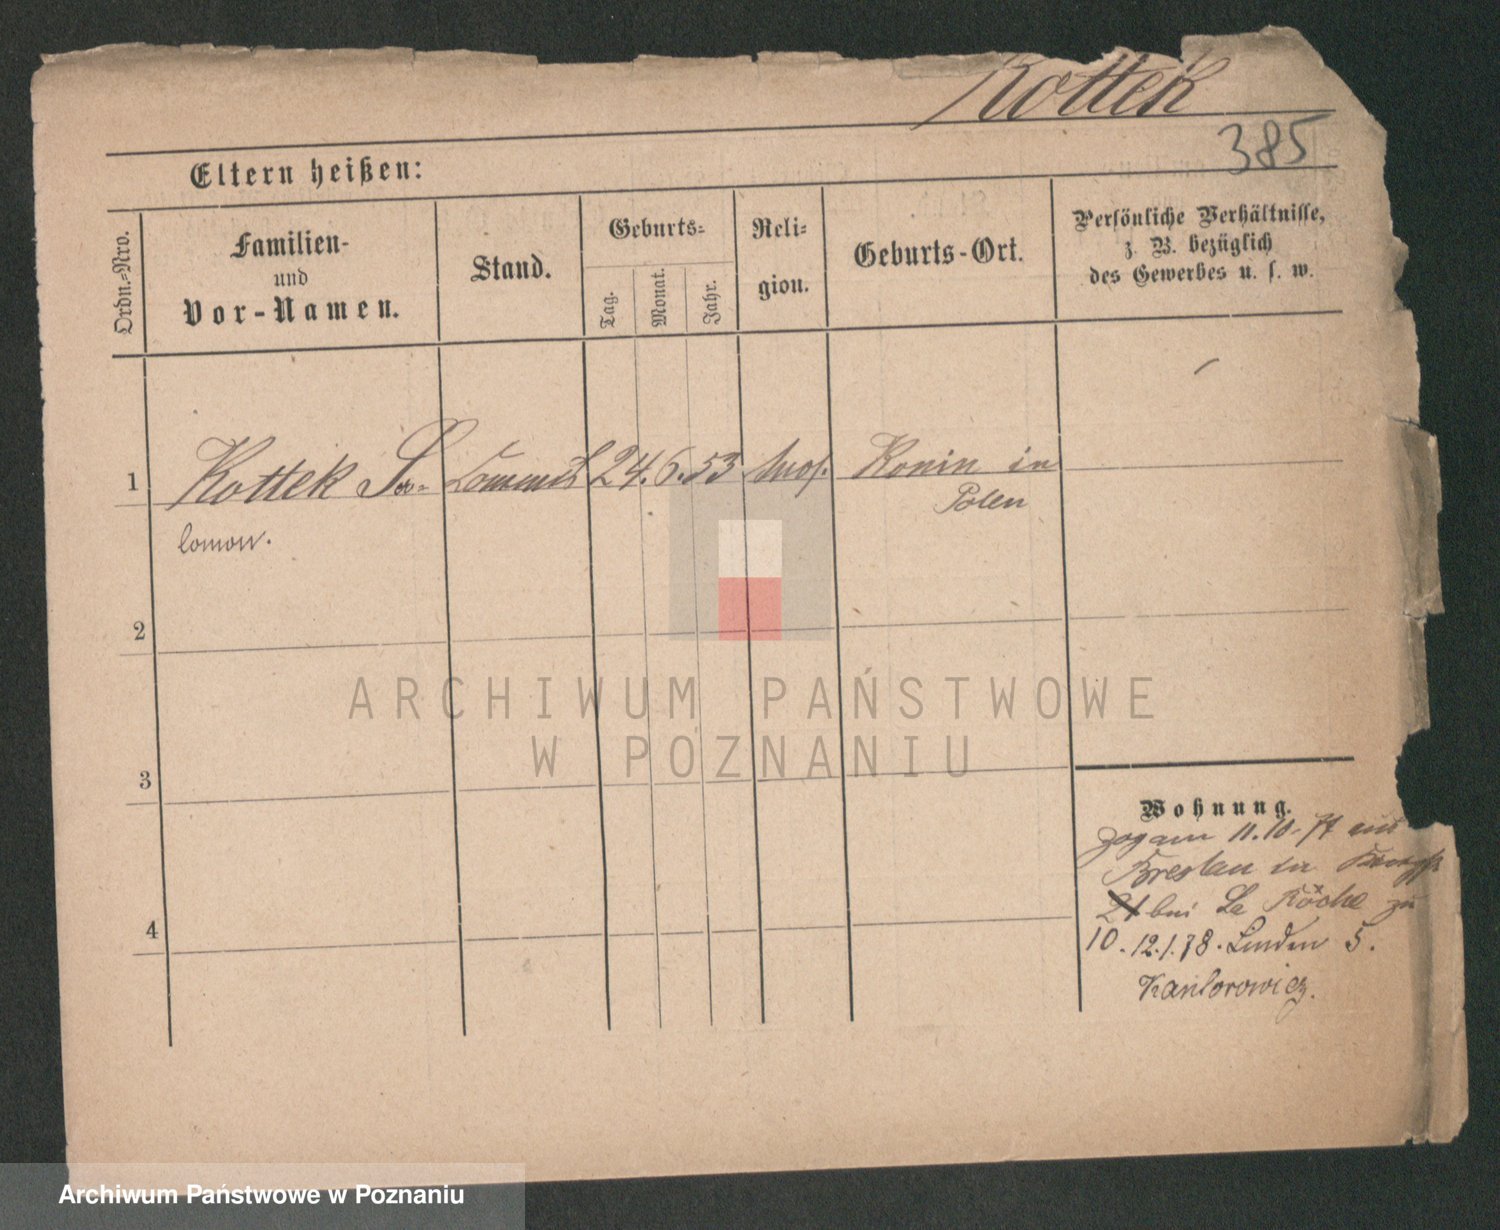 Kottek
385
Eltern heißen:
Ordn.-Nro.
Familien-
und
Vor-Namen.
Stand.
Geburts-
Tag.
Monat.
Jahr.
Reli-
gion.
Geburts-Ort.
Persönliche Verhältnisse,
z. B. bezüglich
des Gewerbes u. s. w.
1 Kottek Sa- Commis 24. 6. 53 mos. Konin in
Polen
lomon.
2
3
4
Wohnung.
Zog am 11.10.77 aus
Breslau in
21 bei La Röche zu
10. 12.1.78. Linden 5.
Kantorowicz.
ARCHIWUM PAŃSTWOWE
W POZNANIU
Archiwum Państwowe w Poznaniu